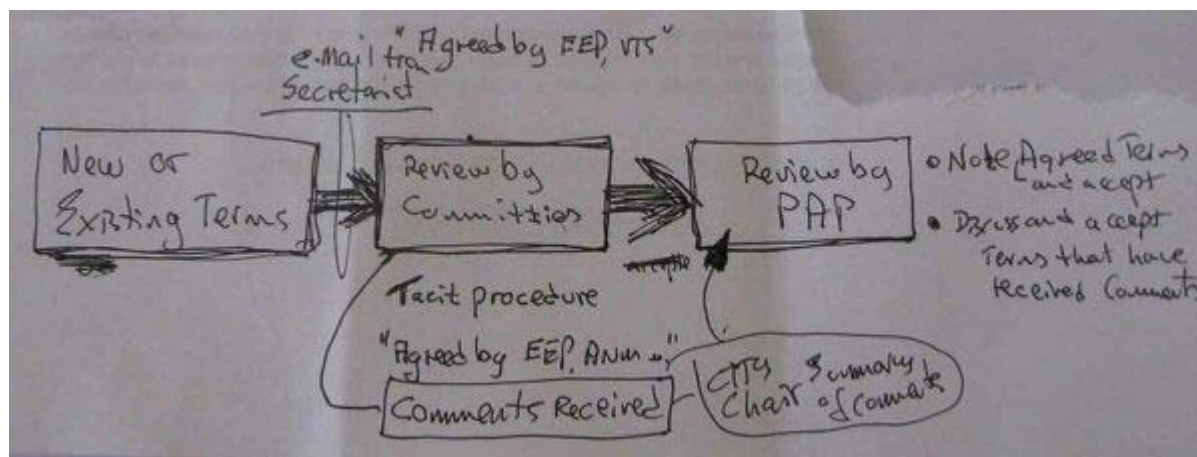 "Agreed by EEP, VTS"
e-mail
Secretariat
New or
Existing Terms
Review by
Committies
Review by
PAP
• Note Agreed Terms
and accept
• Discuss and accept
Terms that have
received Comments
Tacit procedure
"Agreed by EEP, ANM ..."
Comments Received
Summary
Chair of Comments